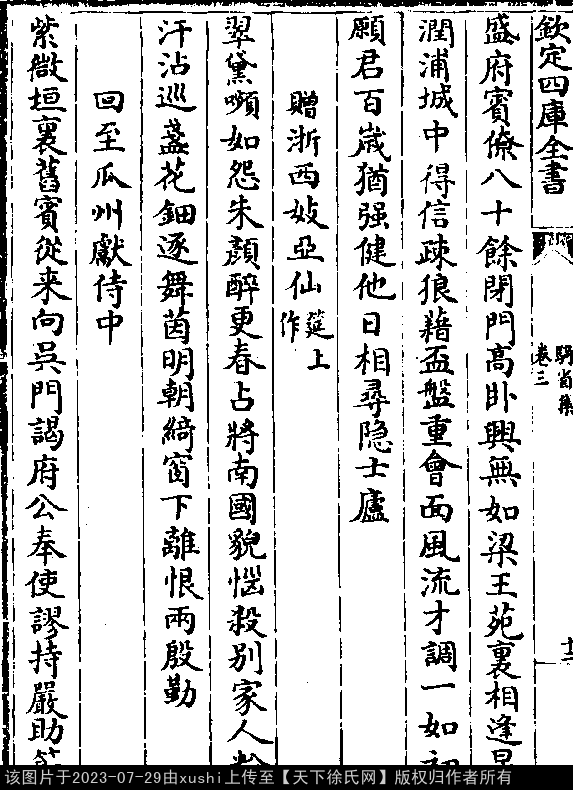 欽定四庫全書
騎省集
卷三
十二
盛府賓僚八十餘閉門高卧興無如梁王苑裏相逢早
潤浦城中得信疎狼藉盃盤重會面風流才調一如初
願君百歲猶强健他日相尋隐士廬
贈浙西妓亞仙筵上作
翠黛嚬如怨朱顔醉更春占將南國貌惱殺别家人粉
汗沾巡盞花鈿逐舞茵明朝綺窗下離恨兩殷勤
回至瓜州獻侍中
紫微垣裏舊賓從来向吳門謁府公奉使謬持嚴助
该图片于2023-07-29由xushi上传至【天下徐氏网】版权归作者所有